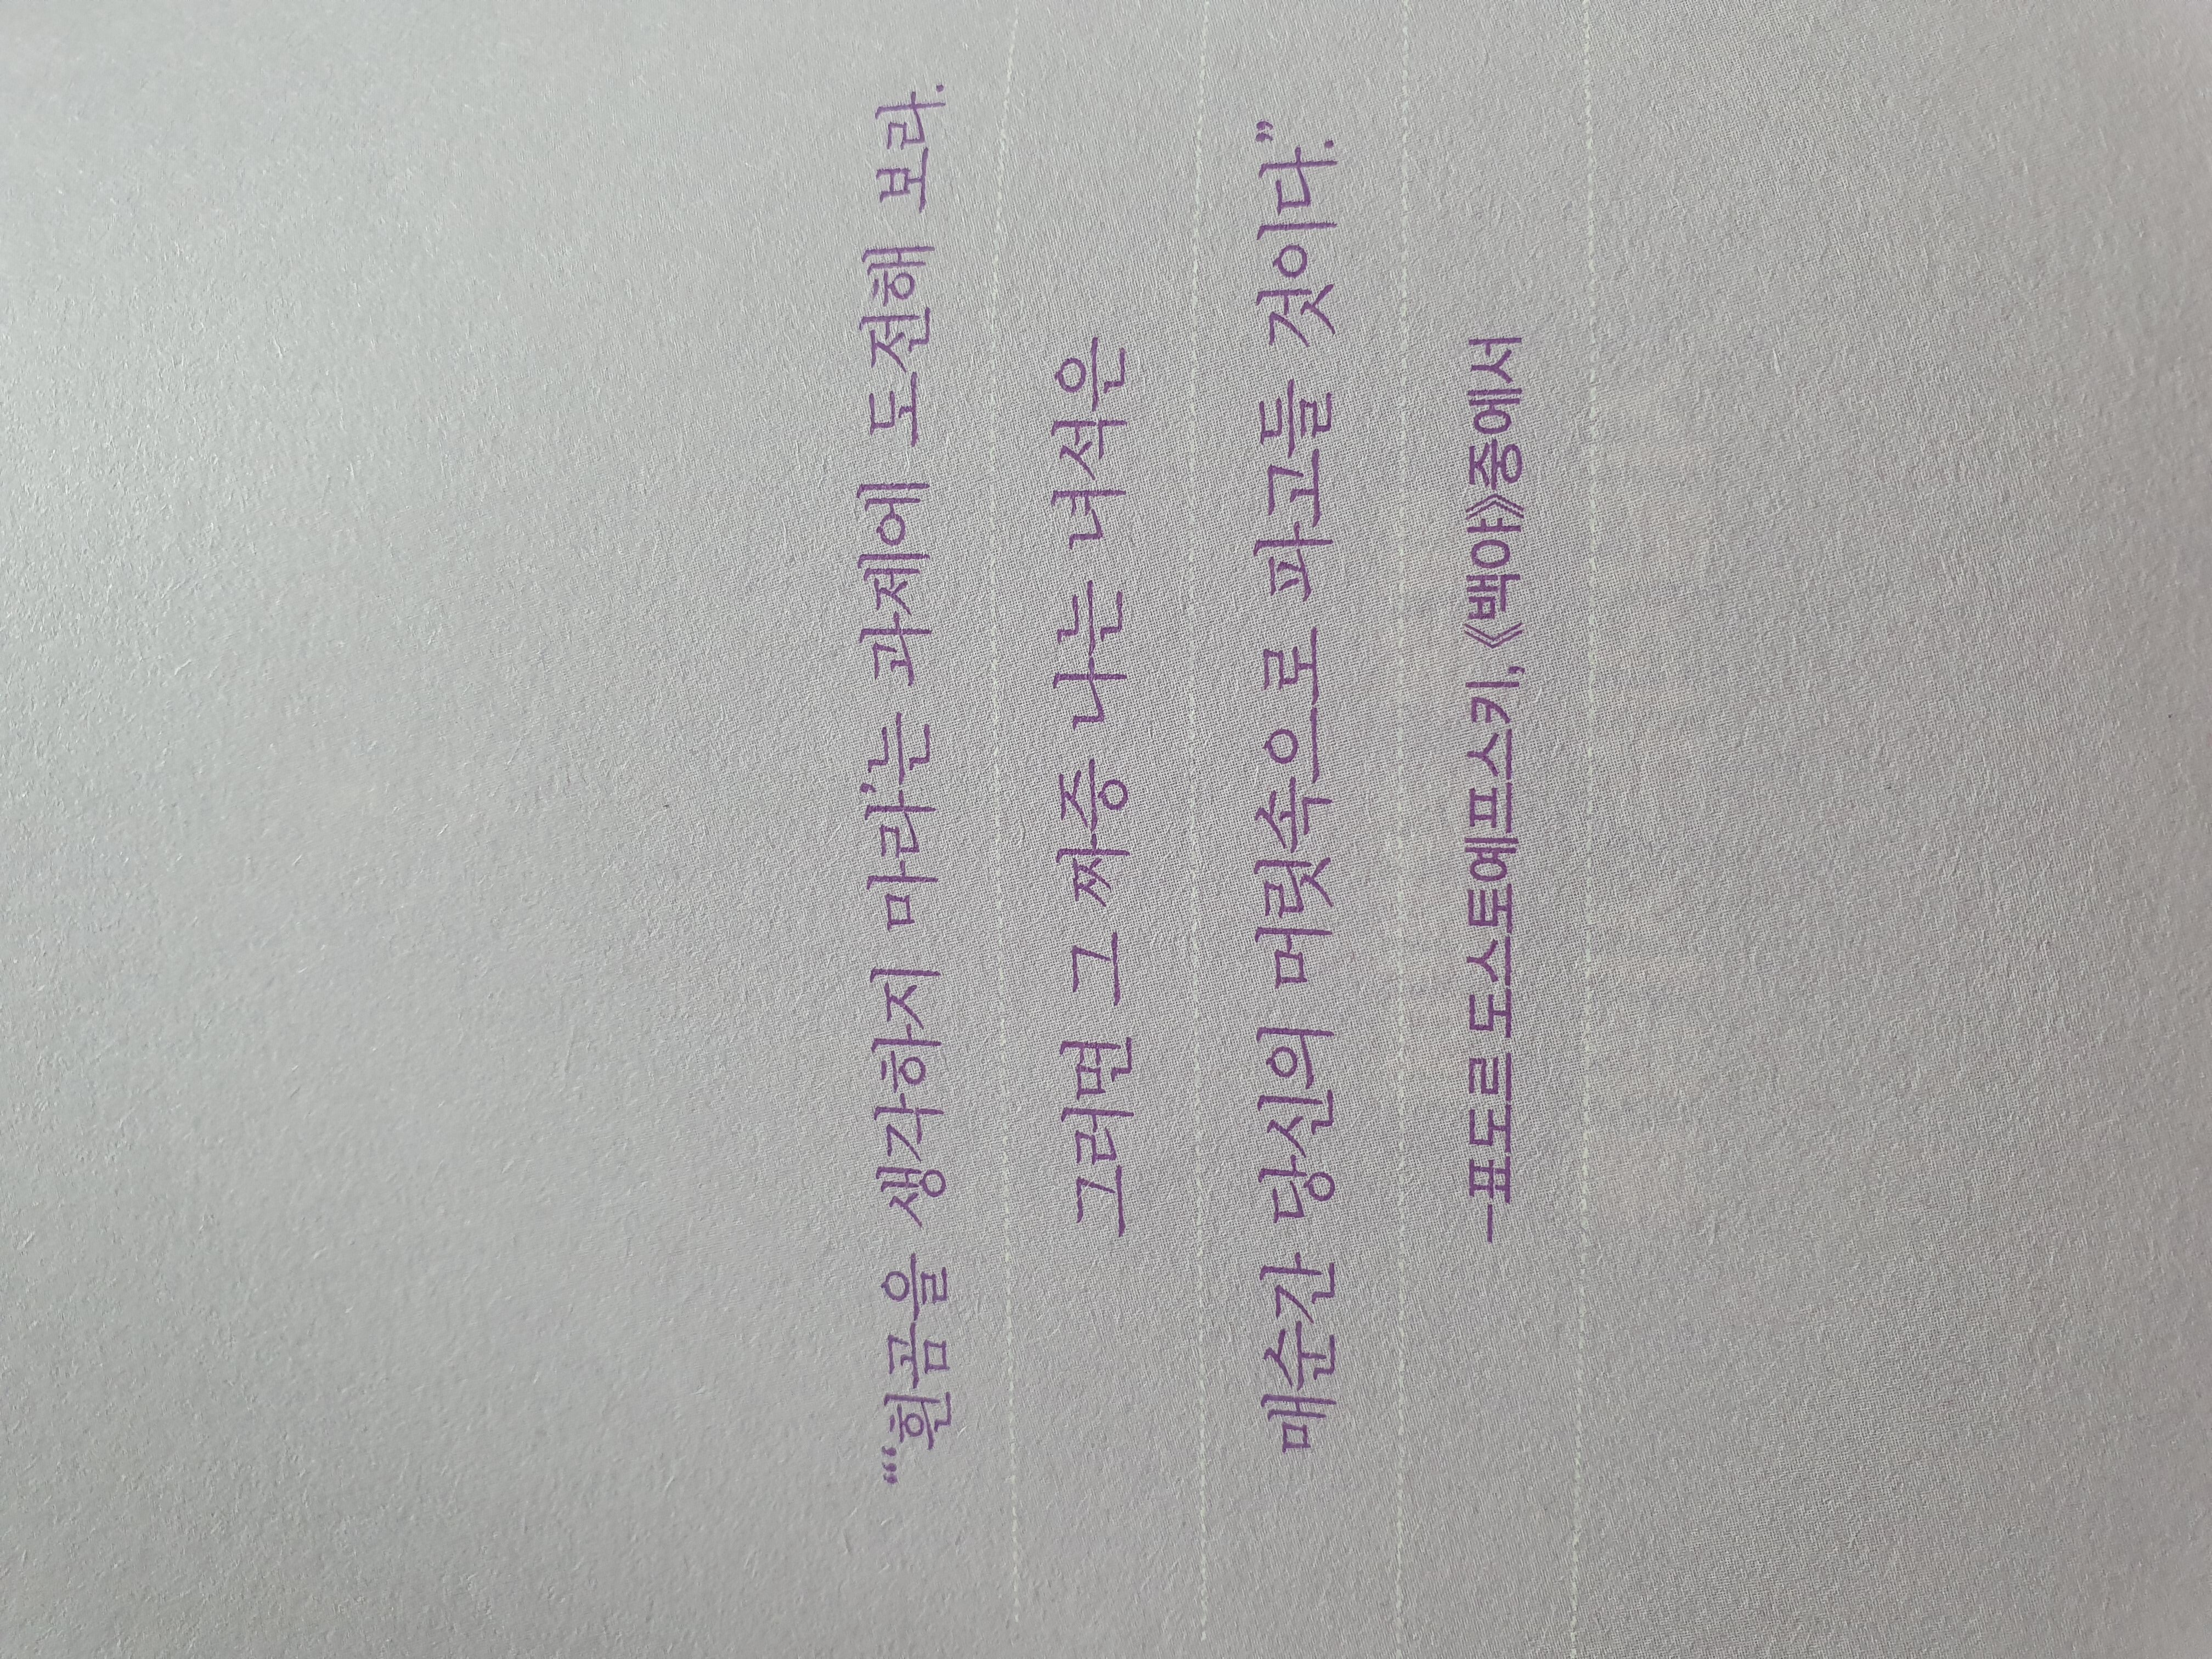 “‘흰곰을 생각하지 마라’는 과제에 도전해 보라.
그러면 그 짜증 나는 녀석은
매순간 당신의 머릿속으로 파고들 것이다.”
–표도르 도스토예프스키, 《백야》중에서